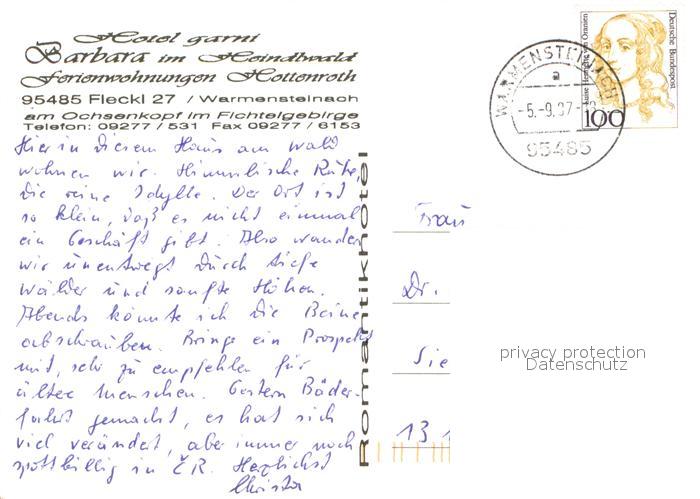 Hotel garni
Barbara im Heindlwald
Ferienwohnungen Hottenroth
95485 Fleckl 27 / Warmensteinach
am Ochsenkopf im Fichtelgebirge
Telefon: 09277 / 531 Fax 09277 / 6153
Hier in diesem Haus am Wald
wohnen wir. Himmlische Ruhe,
die reine Idylle. Der Ort ist
so klein, daß es nicht einmal
ein Geschäft gibt. Also wandern
wir unentwegt durch tiefe
Wälder und sanfte Höhen.
Abends könnte ich die Beine
abschrauben. Bringe ein Prospekt
mit, sehr zu empfehlen für
ältere Menschen. Gestern Bäder-
fahrt gemacht, es hat sich
viel verändert, aber immer noch
spottbillig in ČR. Herzlichst
Christa
Romantikhotel
WARMENSTEINACH
-5.-9.97-
95485
Deutsche Bundespost
Luise Henriette von Oranien
100
Frau
Dr.
Sie
13 1
privacy protection
Datenschutz